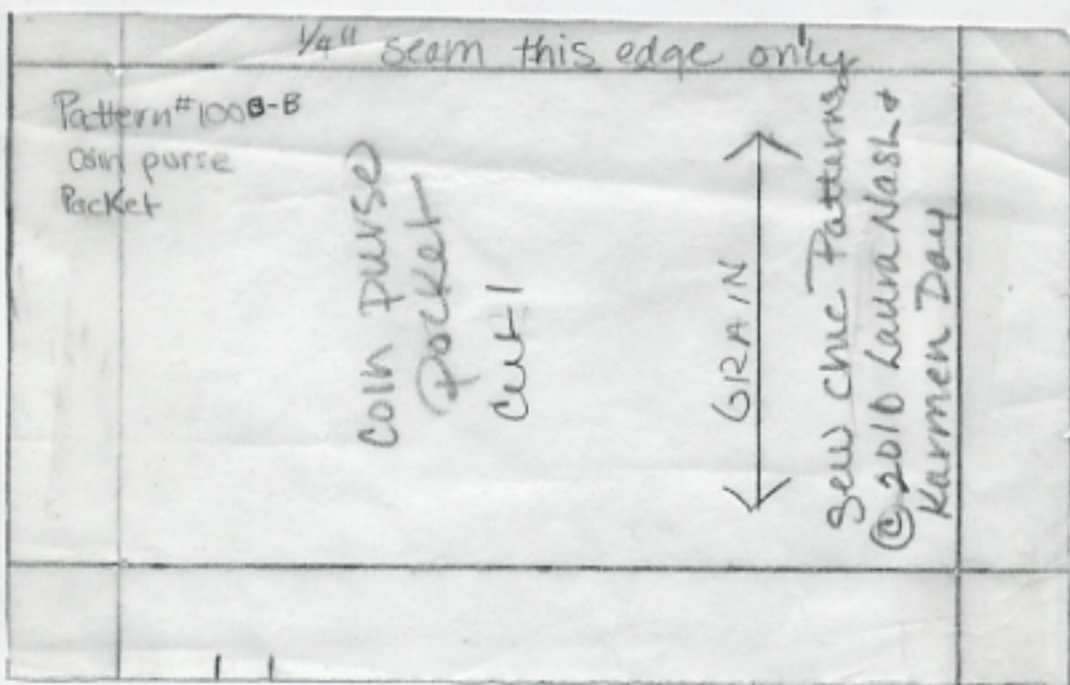 1/4" seam this edge only
Pattern #100B-B
Coin purse
Pocket
Coin purse
Pocket
Cut 1
GRAIN
Sew Chic Patterns
© 2010 Laura Nash &
Karmen Day